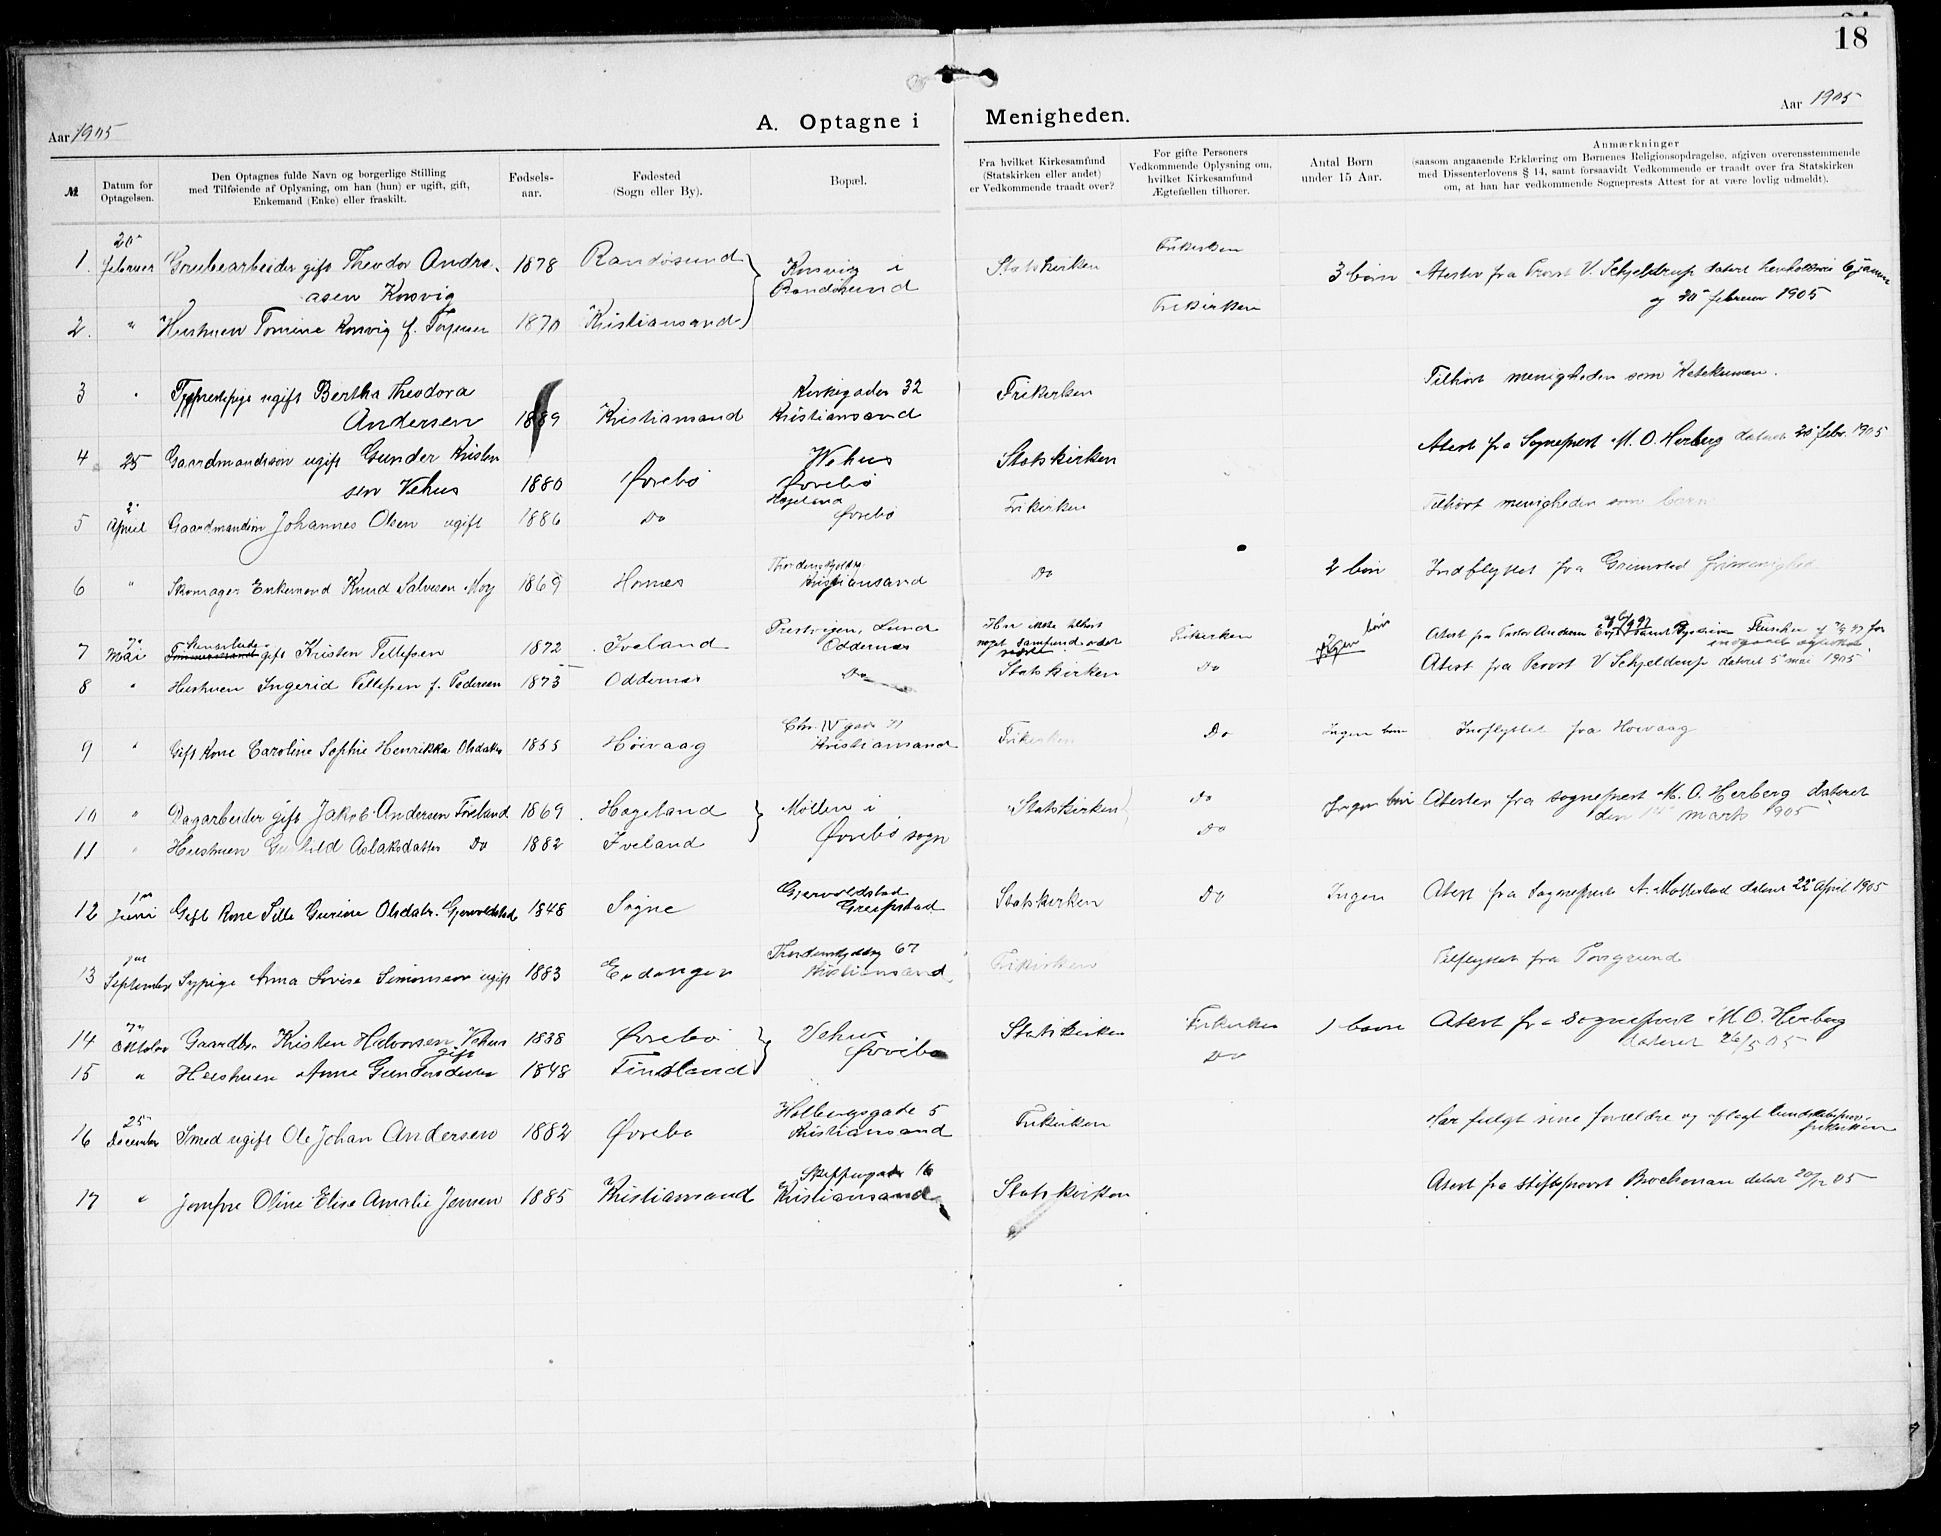 18
Aar 1905
A. Optagne i Menigheden.
Aar 1905
№
Datum for Optagelsen.
Den Optagnes fulde Navn og borgerlige Stilling
med Tilføiende af Oplysning, om han (hun) er ugift, gift,
Enkemand (Enke) eller fraskilt.
Fødsels-
aar.
Fødested
(Sogn eller By).
Bopæl.
Fra hvilket Kirkesamfund
(Statskirken eller andet)
er Vedkommende traadt over?
For gifte Personers
Vedkommende Oplysning om,
hvilket Kirkesamfund
Ægtefællen tilhører.
Antal Børn
under 15 Aar.
Anmærkninger
(saasom angaaende Erklæring om Børnenes Religionsopdragelse, afgiven overensstemmende
med Dissenterlovens § 14, samt forsaavidt Vedkommende er traadt over fra Statskirken
om, at han har vedkommende Sogneprests Attest for at være lovlig udmeldt).
20 Frikirken
1. februar Grubearbeider gift Theodor Andre- 1878 Randøsund Korsvig i Statskirken 3 børn Atester fra Provst V. Schjeldrup datert
asen Korsvig Randøsund Frikirken og 20 februar 1905
2. " Hustruen Tomine Korsvig f. 1870 Kristiansand
3 " ugift Bertha Theodora Kirkegaden 32 Frikirken Tilhørt menigheden som Katekumen.
Andersen 1889 Kristiansand Kristiansand
4 25 Gaardmandssøn ugift Gunder Kristen Vehus Statskirken Atest fra Sogneprest M. O. Herberg dateret 20 febr. 1905
sen Vehus 1880 Øvrebø Øvrebø
2 Hægeland
5 April Gaardmandssøn Johannes Olsen ugift 1886 Do Øvrebø Frikirken Tilhørt menigheden som barn
6 " Skomager Enkemand Knud Salvesen Moy 1869 Hornes Kristiansand Do 2 børn Indflyttet fra Grimstad frimenighed
7 Mai gift Kristen Tellefsen 1872 Iveland Oddernes Frikirken Ingen børn Atest fra Pastor Andersen
8 " Hustruen Ingerid Tellefsen f. Pedersen 1873 Oddernes Do Statskirken Do Atest fra Provst V Schjeldrup dateret 5 mai 1905
Chr. IV gade
9 " Gift Kone Caroline Sophie Henrikka Olsdatter 1855 Høivaag Kristiansand Frikirken Do Ingen børn Indflyttet fra Høivaag
10 " Dagarbeider gift Jakob Andersen Iveland 1869 Hægeland Møllen i Statskirken Do Ingen børn Atester fra sogneprest M. O. Herberg dateret
den 14 marts 1905
11 " Hustruen Aslaksdatter Do 1882 Iveland Øvrebø sogn Do
12 Juni Gift Kone Olsdatr. Gjervoldstad 1848 Søgne Gjervoldstad Greipstad Statskirken Do Ingen Atest fra Sogneprest A. dateret 22 April 1905
13 September Sypige Anna Lovise Simonsen ugift 1883 Eidanger 67 Kristiansand Frikirken Tilflyttet fra Porsgrund
14 Oktober Gaardbr. Kristen Halvorsen Vehus 1838 Øvrebø Vehus Statskirken Frikirken 1 barn Atest fra Sogneprest M. O. Herberg
gift Øvrebø dateret 26/5 05
15 " Hustruen Anne Gundersdatter 1848 Finsland Do
25 Holbergsgade 5
16 December Smed ugift Ole Johan Andersen 1882 Øvrebø Kristiansand Frikirken Har fulgt sine forældre og aflagt kundskabsprøve
frikirken
Skippergade 16
17 " Jomfru Oline Elise Amalie Jensen 1885 Kristiansand Kristiansand Statskirken Atest fra stiftsprovst datert 20/12 05